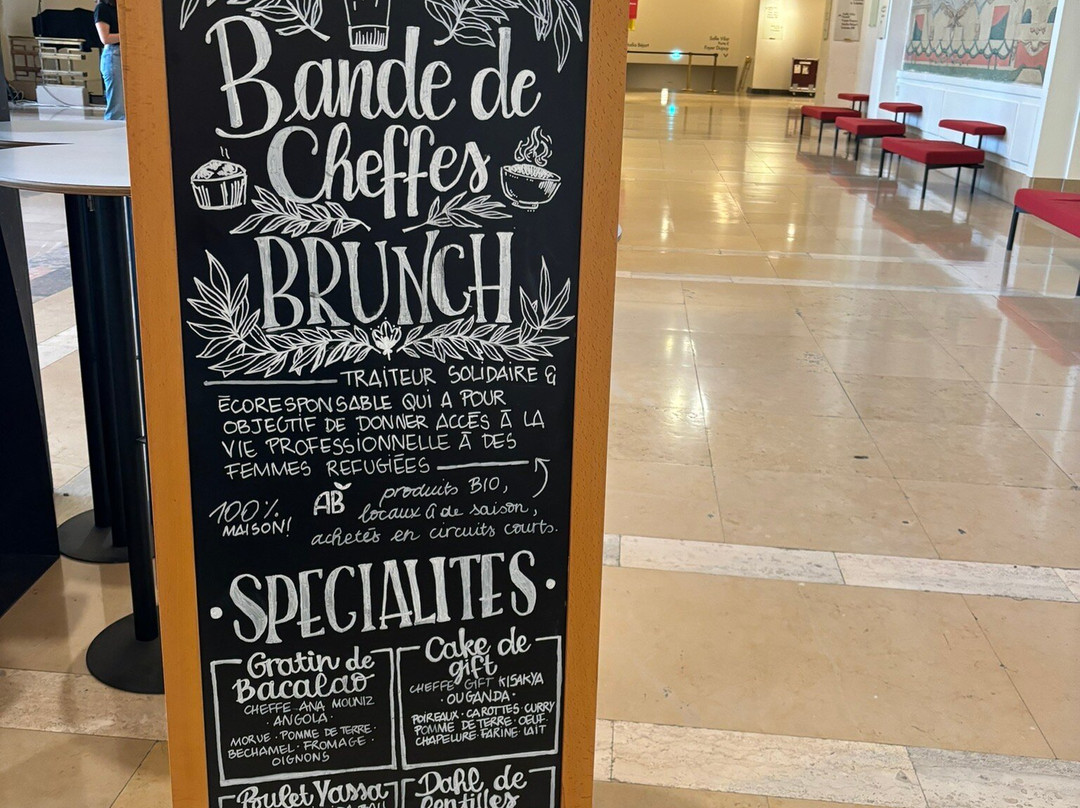 Bande de
Cheffes
BRUNCH
TRAITEUR SOLIDAIRE &
ÉCORESPONSABLE QUI A POUR
OBJECTIF DE DONNER ACCÈS À LA
VIE PROFESSIONNELLE À DES
FEMMES REFUGIÉES
100%
MAISON!
AB
produits BIO,
locaux & de saison,
achetés en circuits courts.
SPECIALITES
Gratin de
Bacalao
CHEFFE ANA MOUNIZ
· ANGOLA ·
MORUE · POMME DE TERRE ·
BECHAMEL · FROMAGE ·
OIGNONS
Cake de
gift
CHEFFE GIFT KISAKYA
· OUGANDA ·
POIREAUX · CAROTTES · CURRY
POMME DE TERRE · OEUF ·
CHAPELURE · FARINE · LAIT
Poulet Yassa
Dahl de
lentilles